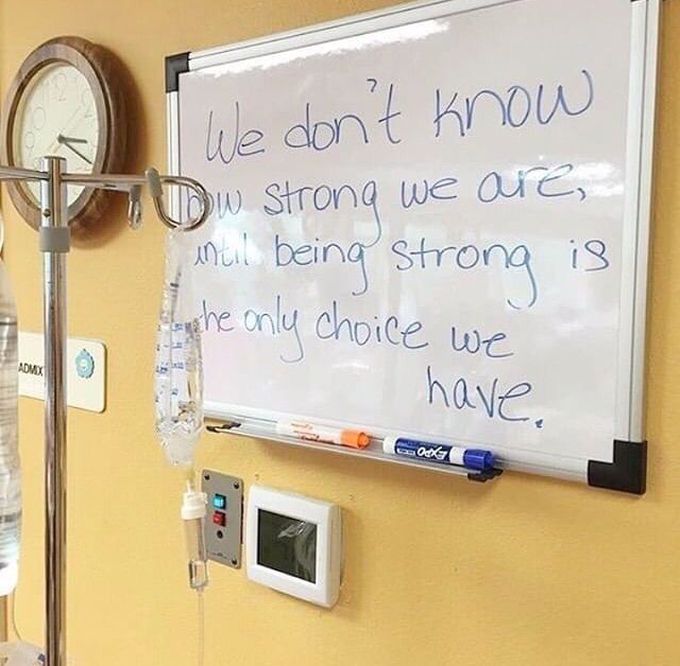 We don't know
how strong we are,
until being strong is
the only choice we
have.
EXPO
ADMIX